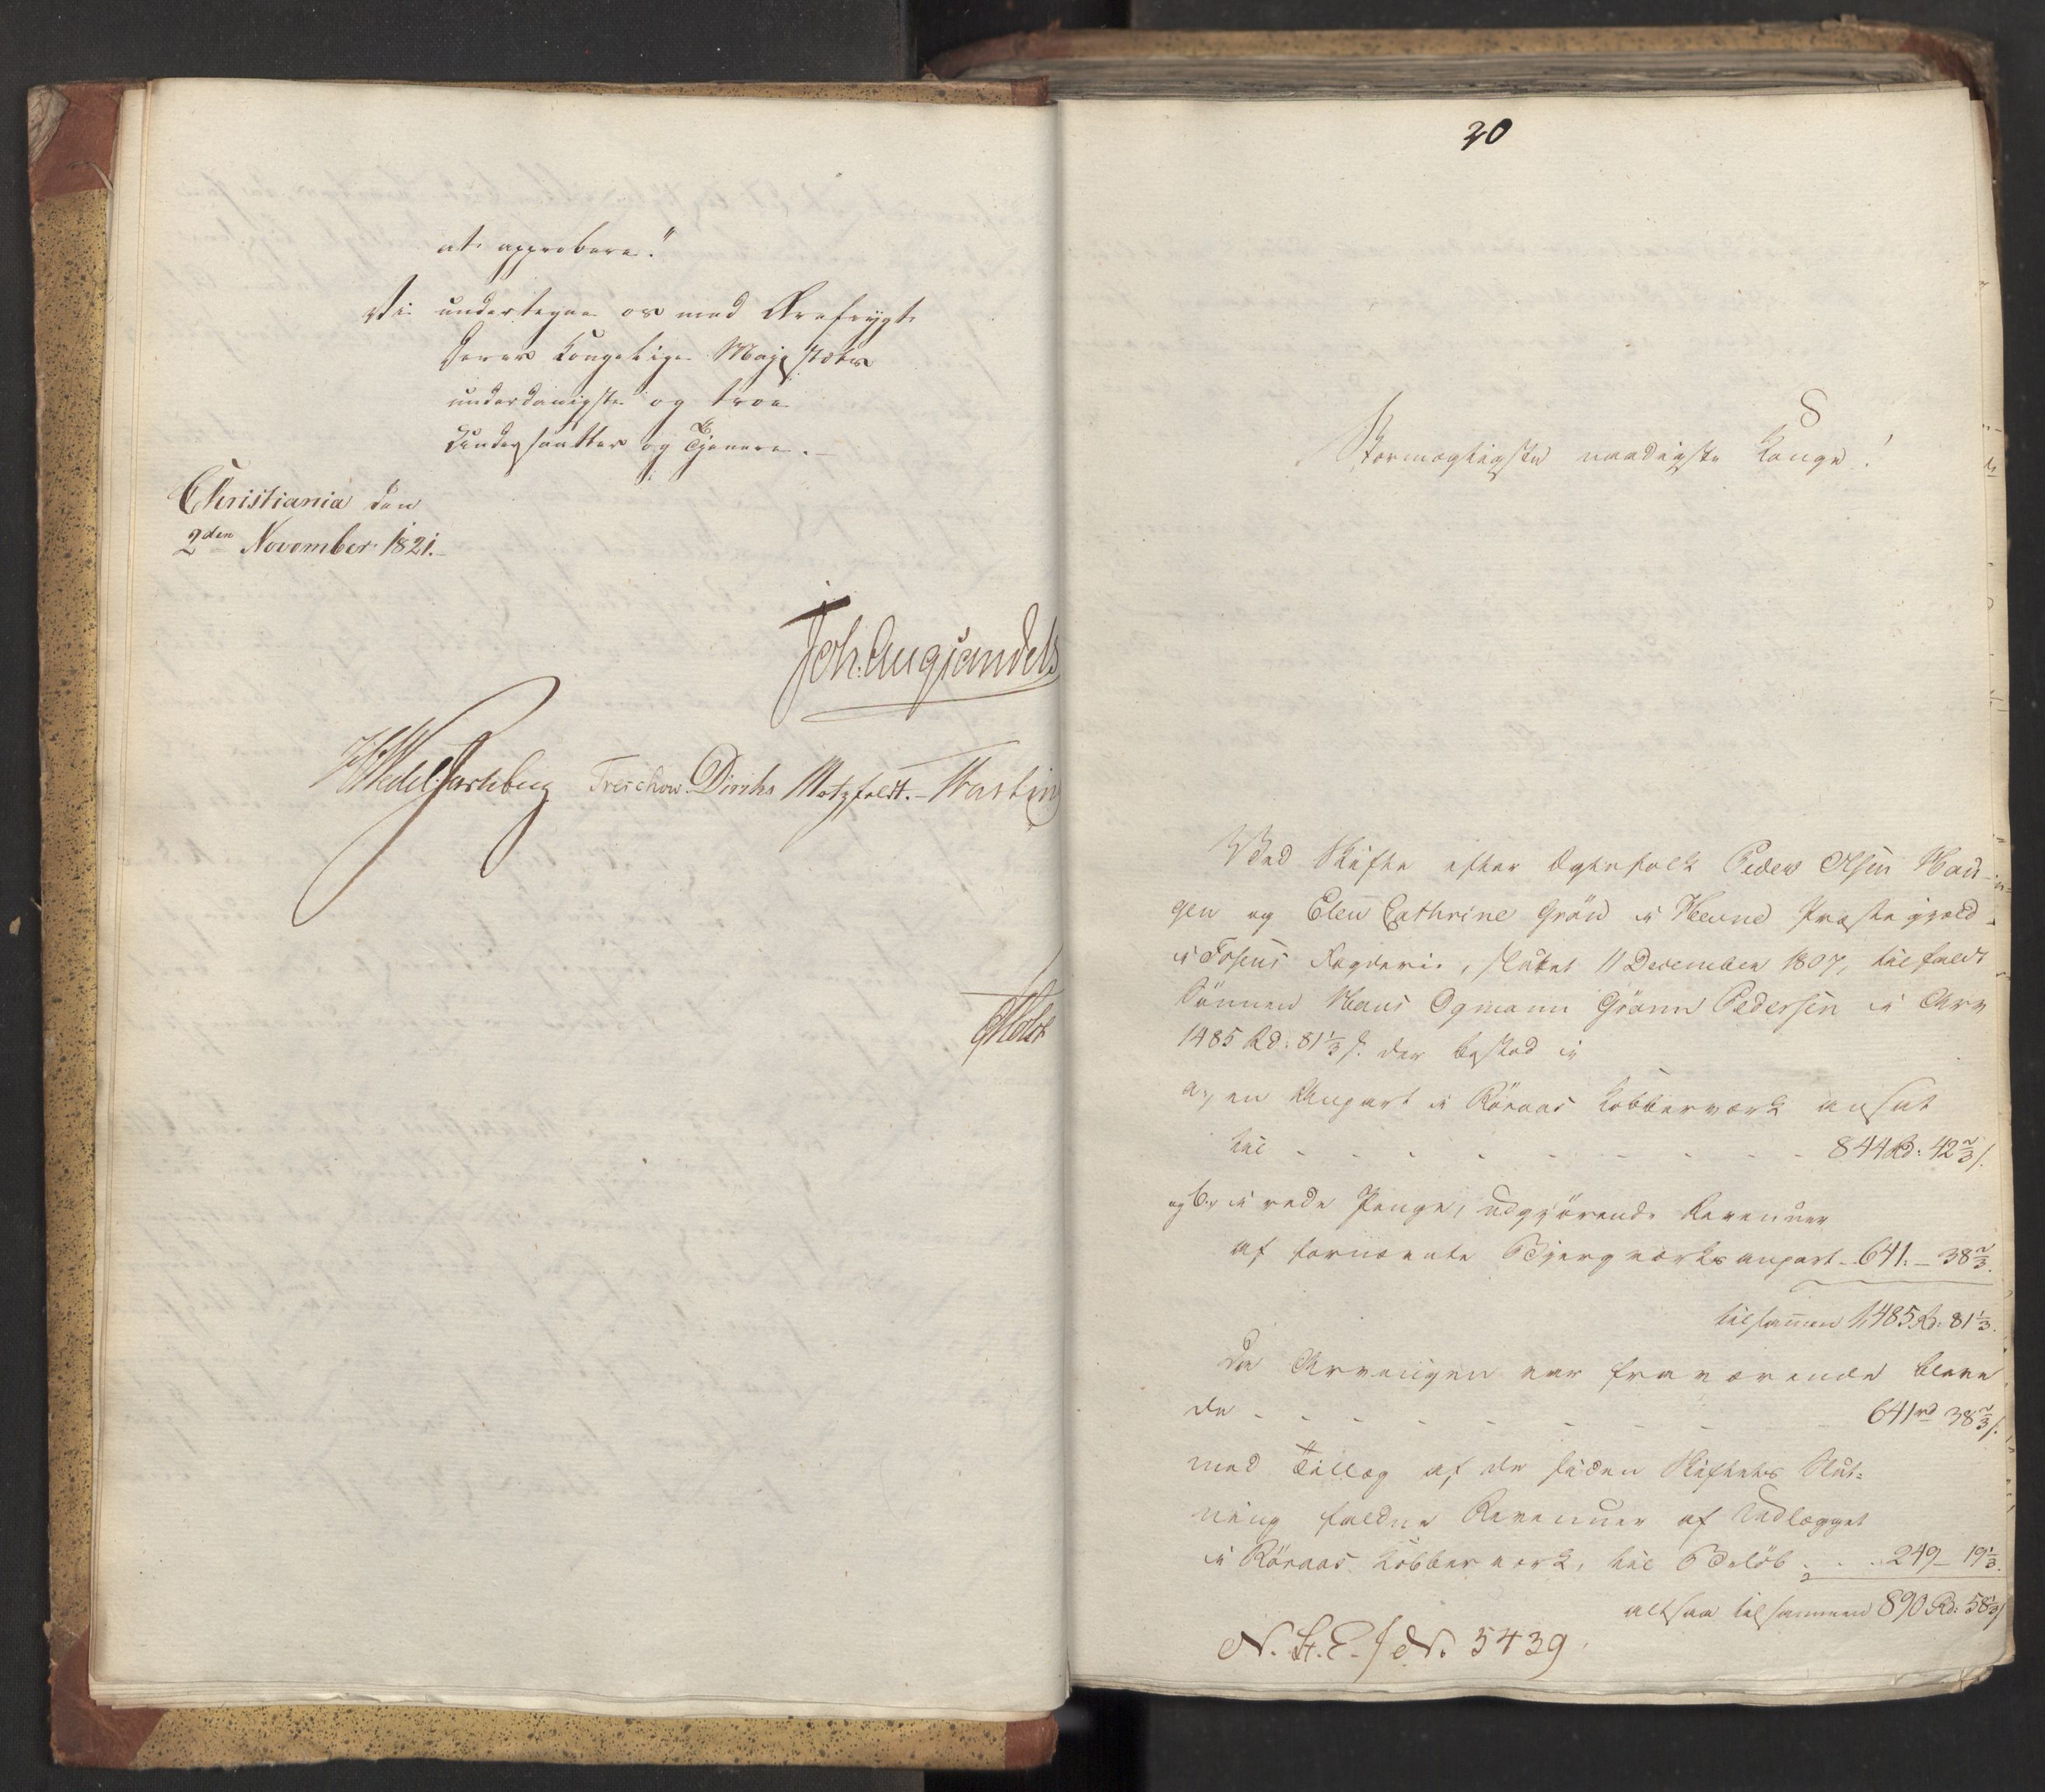 at approbere."
Vi undertegne os med Ærefrygt
Deres Kongelige Majestæts
underdanigste og troe
Undersaatter og Tjenere.
Christiania den
2den November 1821.
Joh. Aug Sandels
HWedel Jarlsberg Treschow Diriks Motzfeldt. Fasting
Holst
20
Stormægtigste naadigste Konge!
Ved Skifte efter Ægtefolk Peder Olsen
gen og Elen Cathrine Grön i Hevne Præstegjæld
i Fosens Fogderie, sluttet 11 December 1807, tilfaldt
Sönnen Hans Ogmann Grönn Pedersen i Arv
1485 Rd: 81 1/3 s. der bestod i
a, en Anpart i Röraas Kobberværk ansat
til - - - - - - - - 844 Rd: 42 2/3 s.
og b, i rede Penge, udgjörende Revenuer
af fornævnte Bjergværks anpart - 641. - 38 2/3.
tilsammen 1,485 Rd: 81 1/3.
Da Arvingen var fraværende bleve
de - - - - - - - - 641 rd 38 2/3 s.
med Tillæg af de siden Skiftets Slut-
ning faldne Revenuer af Udlægget
i Röraas Kobberværk, til Belöb . . . 249 - 19 1/3.
altsaa tilsammen 890 Rd: 58 s
N. St. E. J N. 5439.